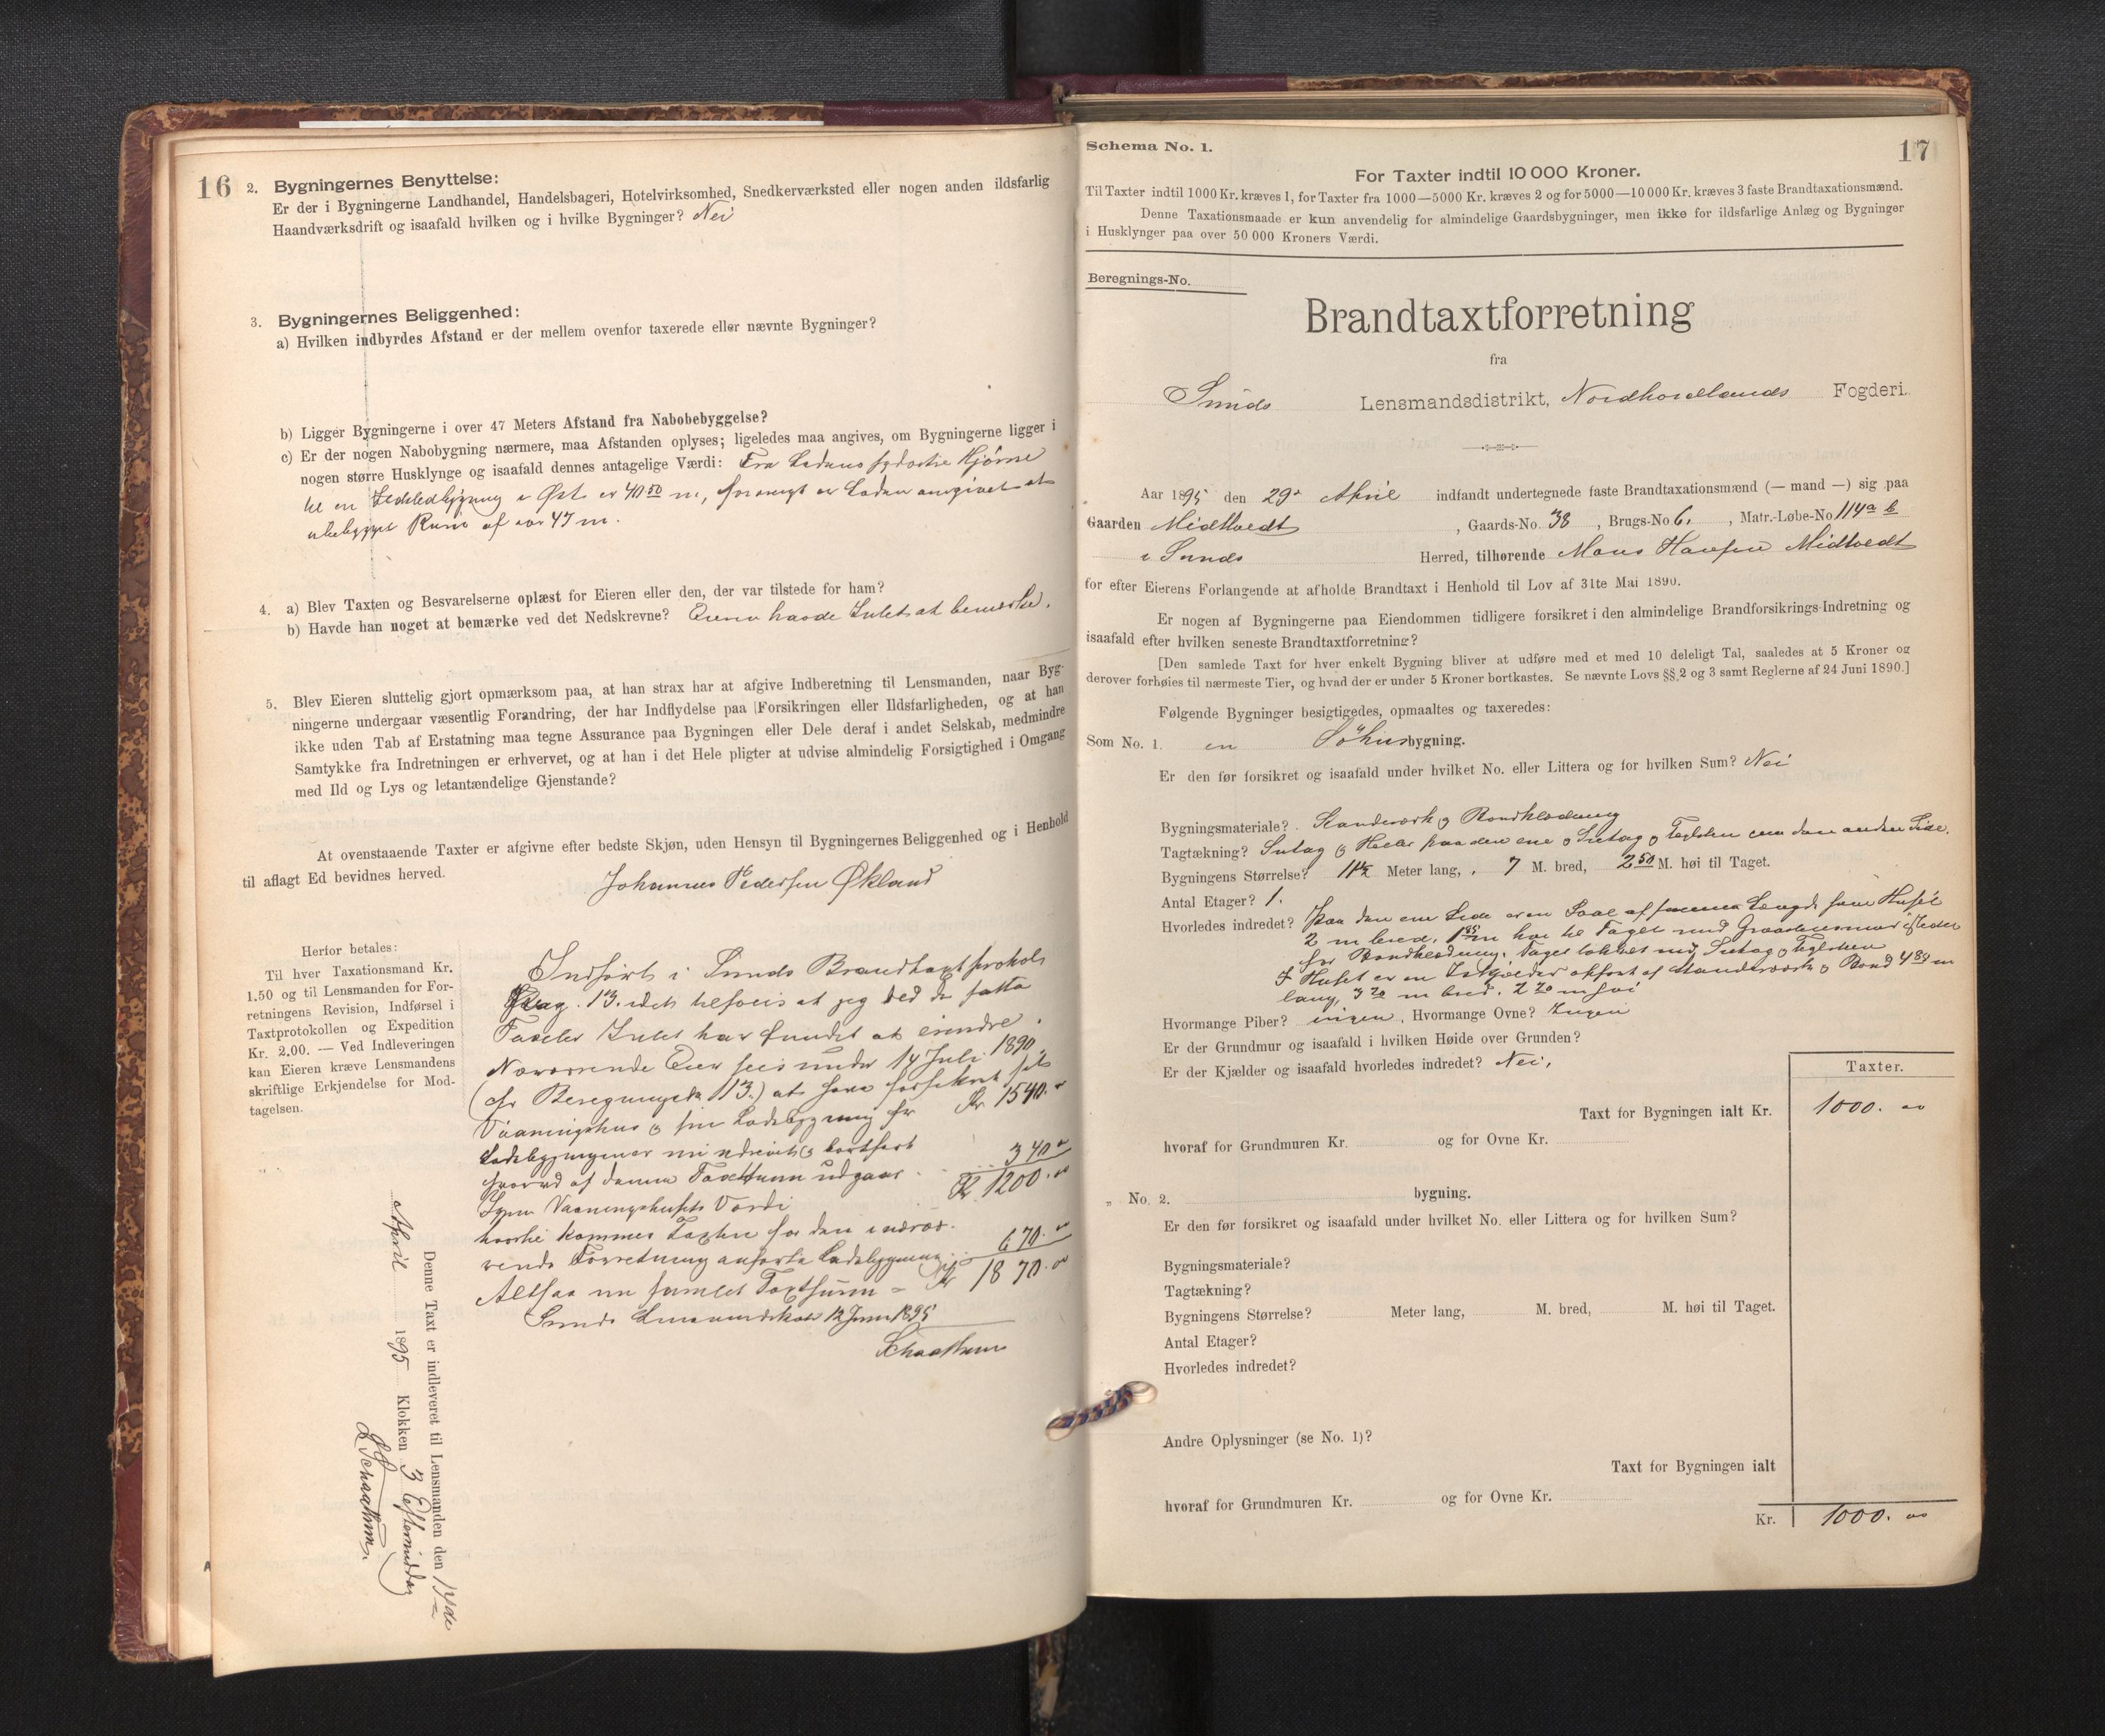 16
2. Bygningernes Benyttelse:
Er der i Bygningerne Landhandel, Handelsbageri, Hotelvirksomhed, Snedkerværksted eller nogen anden ildsfarlig
Haandværksdrift og isaafald hvilken og i hvilke Bygninger? Nei
3. Bygningernes Beliggenhed:
a) Hvilken indbyrdes Afstand er der mellem ovenfor taxerede eller nævnte Bygninger?
b) Ligger Bygningerne i over 47 Meters Afstand fra Nabobebyggelse?
c) Er der nogen Nabobygning nærmere, maa Afstanden oplyses; ligeledes maa angives, om Bygningerne ligger i
nogen større Husklynge og isaafald dennes antagelige Værdi: Fra Ladens sydostre Hjørne
til en i Øst er 40 50 m, forøvrigt er Laden omgivet af
ubebygget Rum af over 47 m.
4. a) Blev Taxten og Besvarelserne oplæst for Eieren eller den, der var tilstede for ham?
b) Havde han noget at bemærke ved det Nedskrevne? Eieren havde Intet at bemærke.
5. Blev Eieren sluttelig gjort opmærksom paa, at han strax har at afgive Indberetning til Lensmanden, naar Byg-
ningerne undergaar væsentlig Forandring, der har Indflydelse paa Forsikringen eller Ildsfarligheden, og at han
ikke uden Tab af Erstatning maa tegne Assurance paa Bygningen eller Dele deraf i andet Selskab, medmindre
Samtykke fra Indretningen er erhvervet, og at han i det Hele pligter at udvise almindelig Forsigtighed i Omgang
med Ild og Lys og letantændelige Gjenstande?
At ovenstaaende Taxter er afgivne efter bedste Skjøn, uden Hensyn til Bygningernes Beliggenhed og i Henhold
til aflagt Ed bevidnes herved.
Johannes Pedersen Økland
Herfor betales:
Til hver Taxationsmand Kr.
1.50 og til Lensmanden for For-
retningens Revision, Indførsel i
Taxtprotokollen og Expedition
Kr. 2.00. — Ved Indleveringen
kan Eieren kræve Lensmandens
skriftlige Erkjendelse for Mod-
tagelsen.
Indført i Sunds Brandtaxtprotokol
Pag. 13. idet tilføies at jeg ved de satte
Taxter Intet har fundet at erindre.
Nærværende Eier sees under 14 Juli 1890
(cfr Beregningsk 113.) at have forsikret sit
Vaaningshus og sin Ladebygning for Kr 1540.00
Ladebygningen er nu nedrevet og bortført
hvorved af denne Taxtsum udgaar 340 00
Igjen Vaaningshusets Værdi Kr 1200.00
hvortil kommer Taxten for den i nærvæ-
rende Forretning anførte Ladebygning 670.00
Altsaa nu samlet Taxtsum = Kr 1870.00
Sunds Lensmandskontor 12 Juni 1895
Schaathun
Denne Taxt er indleveret til Lensmanden den 17de
April 1895 Klokken 3 Eftermiddag
Schaathun.
17
Schema No. 1.
For Taxter indtil 10 000 Kroner.
Til Taxter indtil 1000 Kr. kræves 1, for Taxter fra 1000—5000 Kr. kræves 2 og for 5000—10 000 Kr. kræves 3 faste Brandtaxationsmænd.
Denne Taxationsmaade er kun anvendelig for almindelige Gaardsbygninger, men ikke for ildsfarlige Anlæg og Bygninger
i Husklynger paa over 50 000 Kroners Værdi.
Beregnings-No.
Brandtaxtforretning
fra
Sunds Lensmandsdistrikt, Nordhordlands Fogderi.
Aar 1895 den 29de April indfandt undertegnede faste Brandtaxationsmænd (— mand —) sig paa
Gaarden Midttvedt, Gaards-No. 38, Brugs-No 6., Matr.-Løbe-No 114a b
i Sunds Herred, tilhørende Mons Hansen Midttvedt
for efter Eierens Forlangende at afholde Brandtaxt i Henhold til Lov af 31te Mai 1890.
Er nogen af Bygningerne paa Eiendommen tidligere forsikret i den almindelige Brandforsikrings-Indretning og
isaafald efter hvilken seneste Brandtaxtforretning?
[Den samlede Taxt for hver enkelt Bygning bliver at udføre med et med 10 deleligt Tal, saaledes at 5 Kroner og
derover forhøies til nærmeste Tier, og hvad der er under 5 Kroner bortkastes. Se nævnte Lovs §§ 2 og 3 samt Reglerne af 24 Juni 1890.]
Følgende Bygninger besigtigedes, opmaaltes og taxeredes:
Som No. 1. en Söhusbygning.
Er den før forsikret og isaafald under hvilket No. eller Littera og for hvilken Sum? Nei
Bygningsmateriale? Standværk og Bordklædning
Tagtækning? Sutag og Heller paa den ene og Sutag og Teglsten paa den anden Side.
Bygningens Størrelse? 11½ Meter lang, 7 M. bred, 2 50 M. høi til Taget.
Antal Etager? 1.
Hvorledes indredet? Paa den ene Side er en Sval af samme Længde som Huset
2 m bred, 1 85 m høi til Taget med Graastensmur istedet
for Bordklædning. Taget tækket med Sutag og Teglsten
I Huset er en opført af Standværk og Bord 4 80 m
lang, 3 20 m bred, 2 20 m høi
Hvormange Piber? ingen. Hvormange Ovne? Ingen
Er der Grundmur og isaafald i hvilken Høide over Grunden?
Er der Kjælder og isaafald hvorledes indredet? Nei.
Taxter.
Taxt for Bygningen ialt Kr. 1000. 00
hvoraf for Grundmuren Kr. og for Ovne Kr.
„ No. 2. bygning.
Er den før forsikret og isaafald under hvilket No. eller Littera og for hvilken Sum?
Bygningsmateriale?
Tagtækning?
Bygningens Størrelse? Meter lang, M. bred, M. høi til Taget.
Antal Etager?
Hvorledes indredet?
Andre Oplysninger (se No. 1)?
Taxt for Bygningen ialt
hvoraf for Grundmuren Kr. og for Ovne Kr.
Kr. 1000. 00